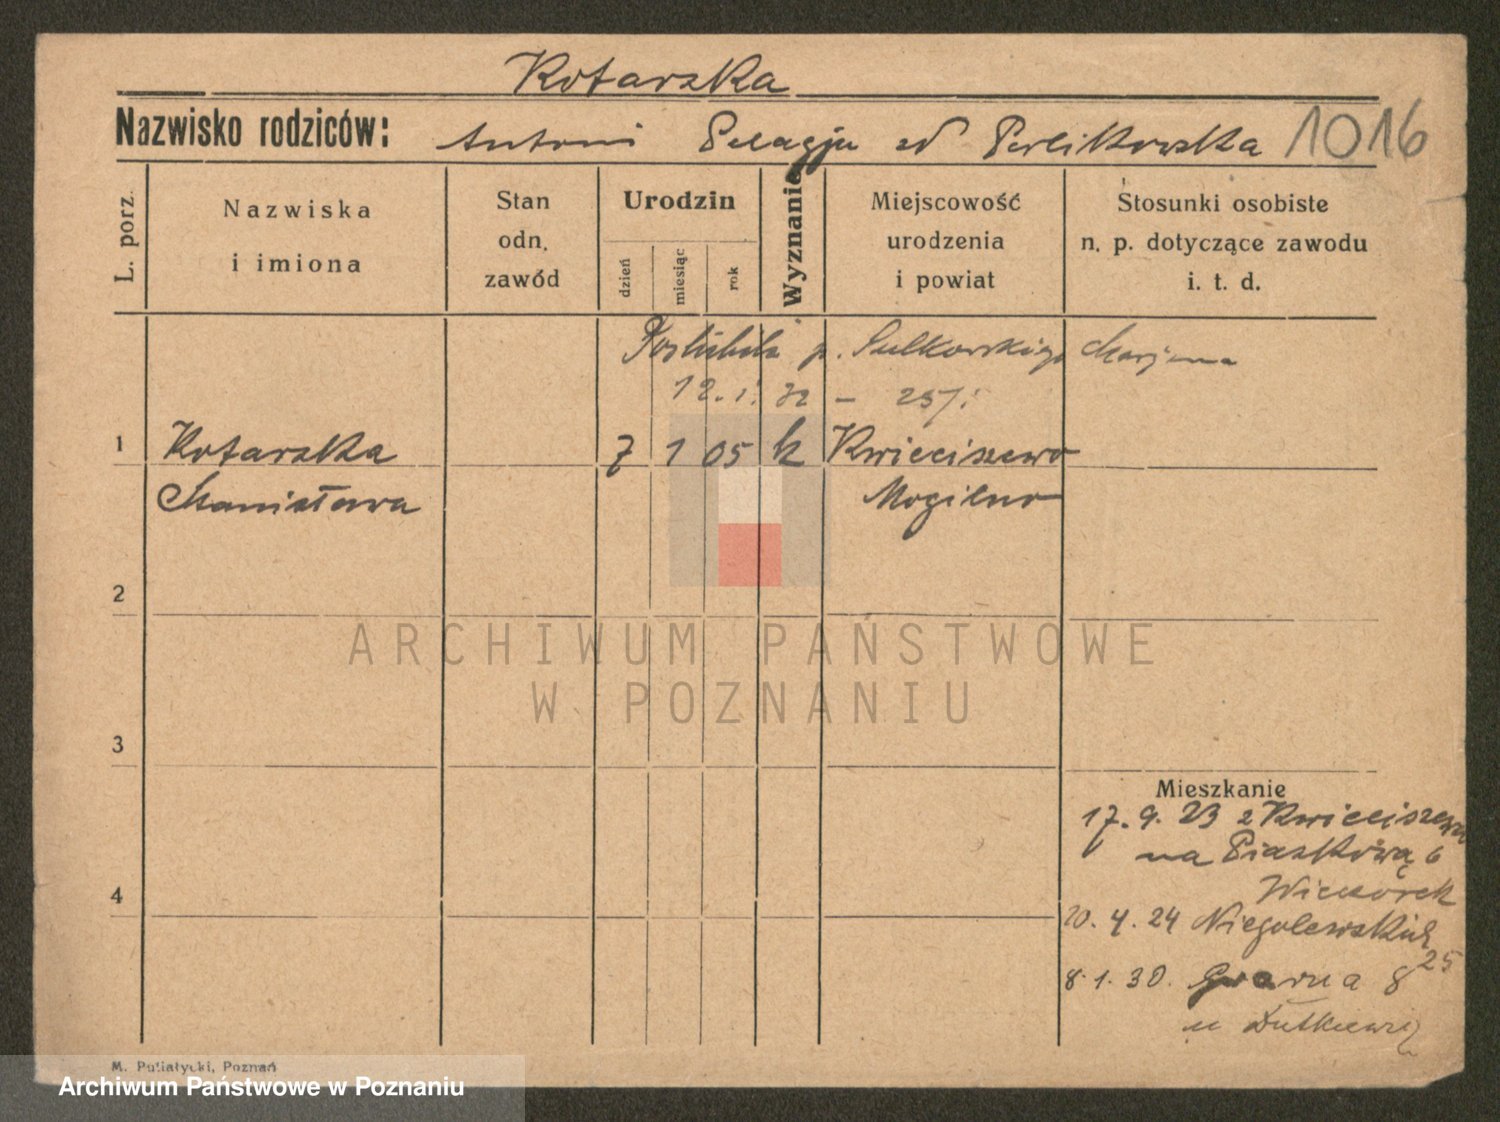 Kotarska
Nazwisko rodziców: Antoni Pelagja zd Perlikowska 1016
L. porz.
Nazwiska
i imiona
Stan
odn.
zawód
Urodzin
dzień
miesiąc
rok
Wyznanie
Miejscowość
urodzenia
i powiat
Stosunki osobiste
n. p. dotyczące zawodu
i. t. d.
Poślubiła p. Sulkowskiego Marjana
12. 1. 32 – 257.
1 Kotarska 7 1 05 k Kwieciszewo
Stanisława Mogilno
2
ARCHIWUM PAŃSTWOWE
W POZNANIU
3
Mieszkanie
17. 9. 23 z Kwieciszewa
na Piaskową 6
Wieczorek
4
20. 4. 24 Niegolewskich
25
8. 1. 30. Gwarna 8
u Dutkiewicz
M. Putiatycki, Poznań
Archiwum Państwowe w Poznaniu